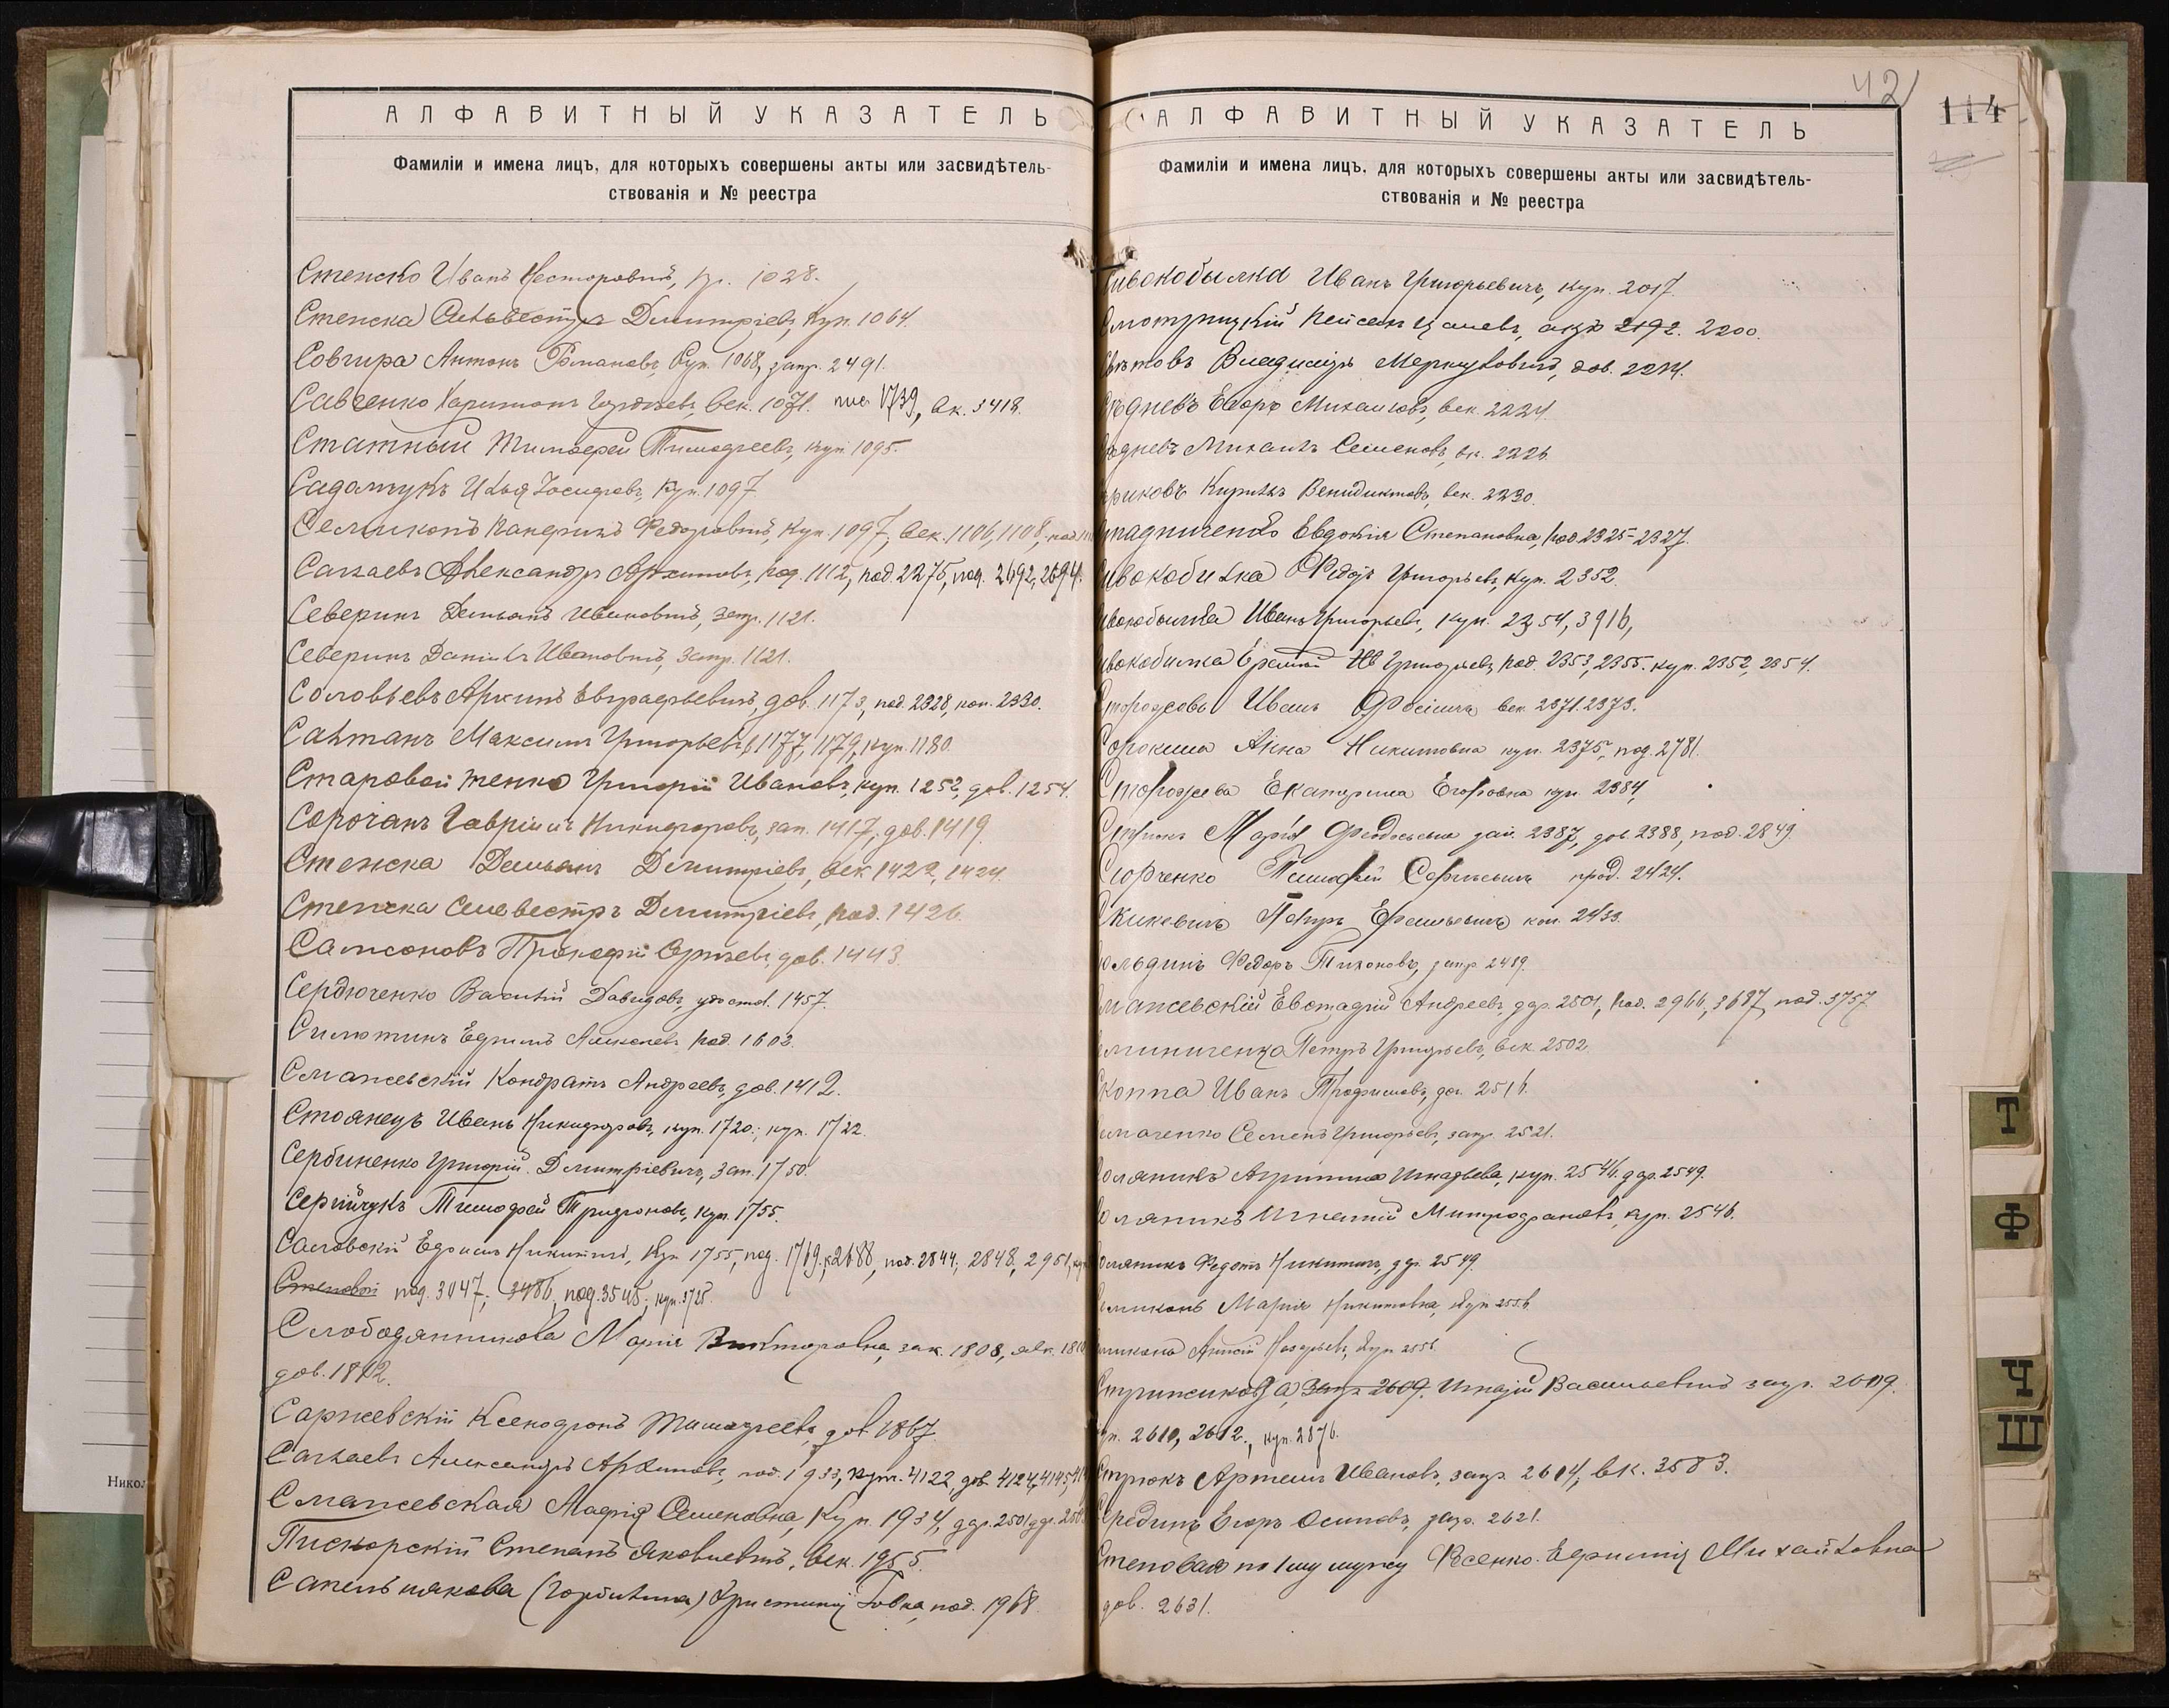 АЛФАВИТНЫЙ УКАЗАТЕЛЬ
Фамиліи и имена лицъ, для которыхъ совершены акты или засвидѣтель-
ствованія и № реестра
Стенско Иванъ Несторовичъ, 1028.
Стенска Сильвестръ Димитріевъ, Куп. 1064.
Совгира Антонъ Романовъ, Куп. 1068, запр. 2491.
Савченко Харитонъ век. 1071. 1739, вк. 3418.
Статный Тимофей Тимофеевъ, куп. 1095.
Садолчукъ Илья Іосифовъ, Куп. 1097
Федоровичъ, Куп. 1097, век. 1106, 1108,
Сагаевъ Александръ Архиповъ, под. 1112, под. 2275, под. 2692, 2694.
Северинъ Демьянъ Ивановичъ, запр. 1121.
Северинъ Даніилъ Ивановичъ, запр. 1121.
Соловьевъ Архипъ Евграфьевичъ, дов. 1173, под. 2328, коп. 2330.
Салтанъ Максимъ Григорьевъ, 1177, 1179, куп. 1180.
Старовойтенко Григорій Ивановъ, куп. 1252, дов. 1254.
Сорочанъ Гавріилъ Никифоровъ, зап. 1417, дов. 1419.
Стенска Демьянъ Димитріевъ, век. 1422, 1424.
Стенска Силвестръ Димитріевъ, под. 1426.
Самсоновъ Прокофій Сергѣевъ, дов. 1443.
Сердюченко Василій Давидовъ, удостов. 1457.
Силютинъ Ефимъ Алексеевъ под. 1603.
Смажевскій Кондратъ Андреевъ, дов. 1412.
Стоянецъ Иванъ Никифоровъ, куп. 1720; куп. 1722.
Сербиненко Григорій Димитріевичъ, зап. 1750.
Сергійчукъ Тимофей Трифоновъ, куп. 1755.
Садовскій Ефимъ Никитинъ, Куп. 1755, под. 1769, 2688, под. 2844, 2848, 2951,
Степовой под. 3047; 3486, под. 3545; куп. 3725.
Слободянникова Марія Викторовна, зак. 1808,
дов. 1812.
Саржевскій Ксенофонъ Тимофеевъ, дов. 1867.
Сагаевъ Александръ Архиповъ, под. 1933, куп. 4122, дов. 4124, 4145,
Смажевская Марія Семеновна, Куп. 1934, дар. 2501 дар.
Пискорскій Степанъ Яковлевичъ, век. 1955.
Сапельнякова (Горбилина) Христинія под. 1968.
42
114
АЛФАВИТНЫЙ УКАЗАТЕЛЬ
Фамиліи и имена лицъ, для которыхъ совершены акты или засвидѣтель-
ствованія и № реестра
Сивокобылка Иванъ Григорьевичъ, куп. 2017.
Смотрицкій 2192. 2200.
Свѣтовъ Владиміръ Меркуловичъ, дов. 2214.
Средневъ Егоръ Михаиловъ, век. 2224.
Средневъ Михаилъ Семеновъ, вк. 2226.
Кириллъ Венидиктовъ, век. 2230.
Евдокія Степановна, под. 2325-2327.
Сивокобилка Федоръ Григорьевъ, куп. 2352.
Сивокобылка Иванъ Григорьевъ, куп. 2354, 3916,
Сивокобилка Григорьевъ, под. 2353, 2355. куп. 2352, 2354.
Сторожевъ Иванъ век. 2371. 2373.
Сорокина Анна Никитовна куп. 2375, под. 2781.
Сторожева Екатерина Егоровна куп. 2384,
Марія 2387, дов. 2388, под. 2849.
Тимофей Сергѣевичъ 2424.
Скикевичъ Петръ коп. 2433.
Федоръ Тихоновъ, запр. 2489.
Смажевскій Евстафій Андреевъ, дар. 2501, под. 2966, 3687, под. 3757
Петръ Григорьевъ, век. 2502
Скопа Иванъ Трофимовъ, дог. 2516.
Семенъ Григорьевъ, запр. 2521.
Соляникъ Игнатьева, куп. 2546. дар. 2549.
Соляникъ Игнатій Митрофановъ, куп. 2546.
Соляникъ Федотъ Никитинъ, дар. 2549.
Марія Никитовна, куп. 2556.
Куп. 2556.
Стрижикоза, запр. 2609. Игнатій Васильевичъ запр. 2609.
2610, 2612., куп. 2876.
Стрюкъ Артемъ Ивановъ, запр. 2614, вк. 3583.
Средин Егоръ Осиповъ, запр. 2621.
Степовая по 1му мужу Ефимія Михайловна
дов. 2631.
Т
Ф
Ч
Ш
Никол